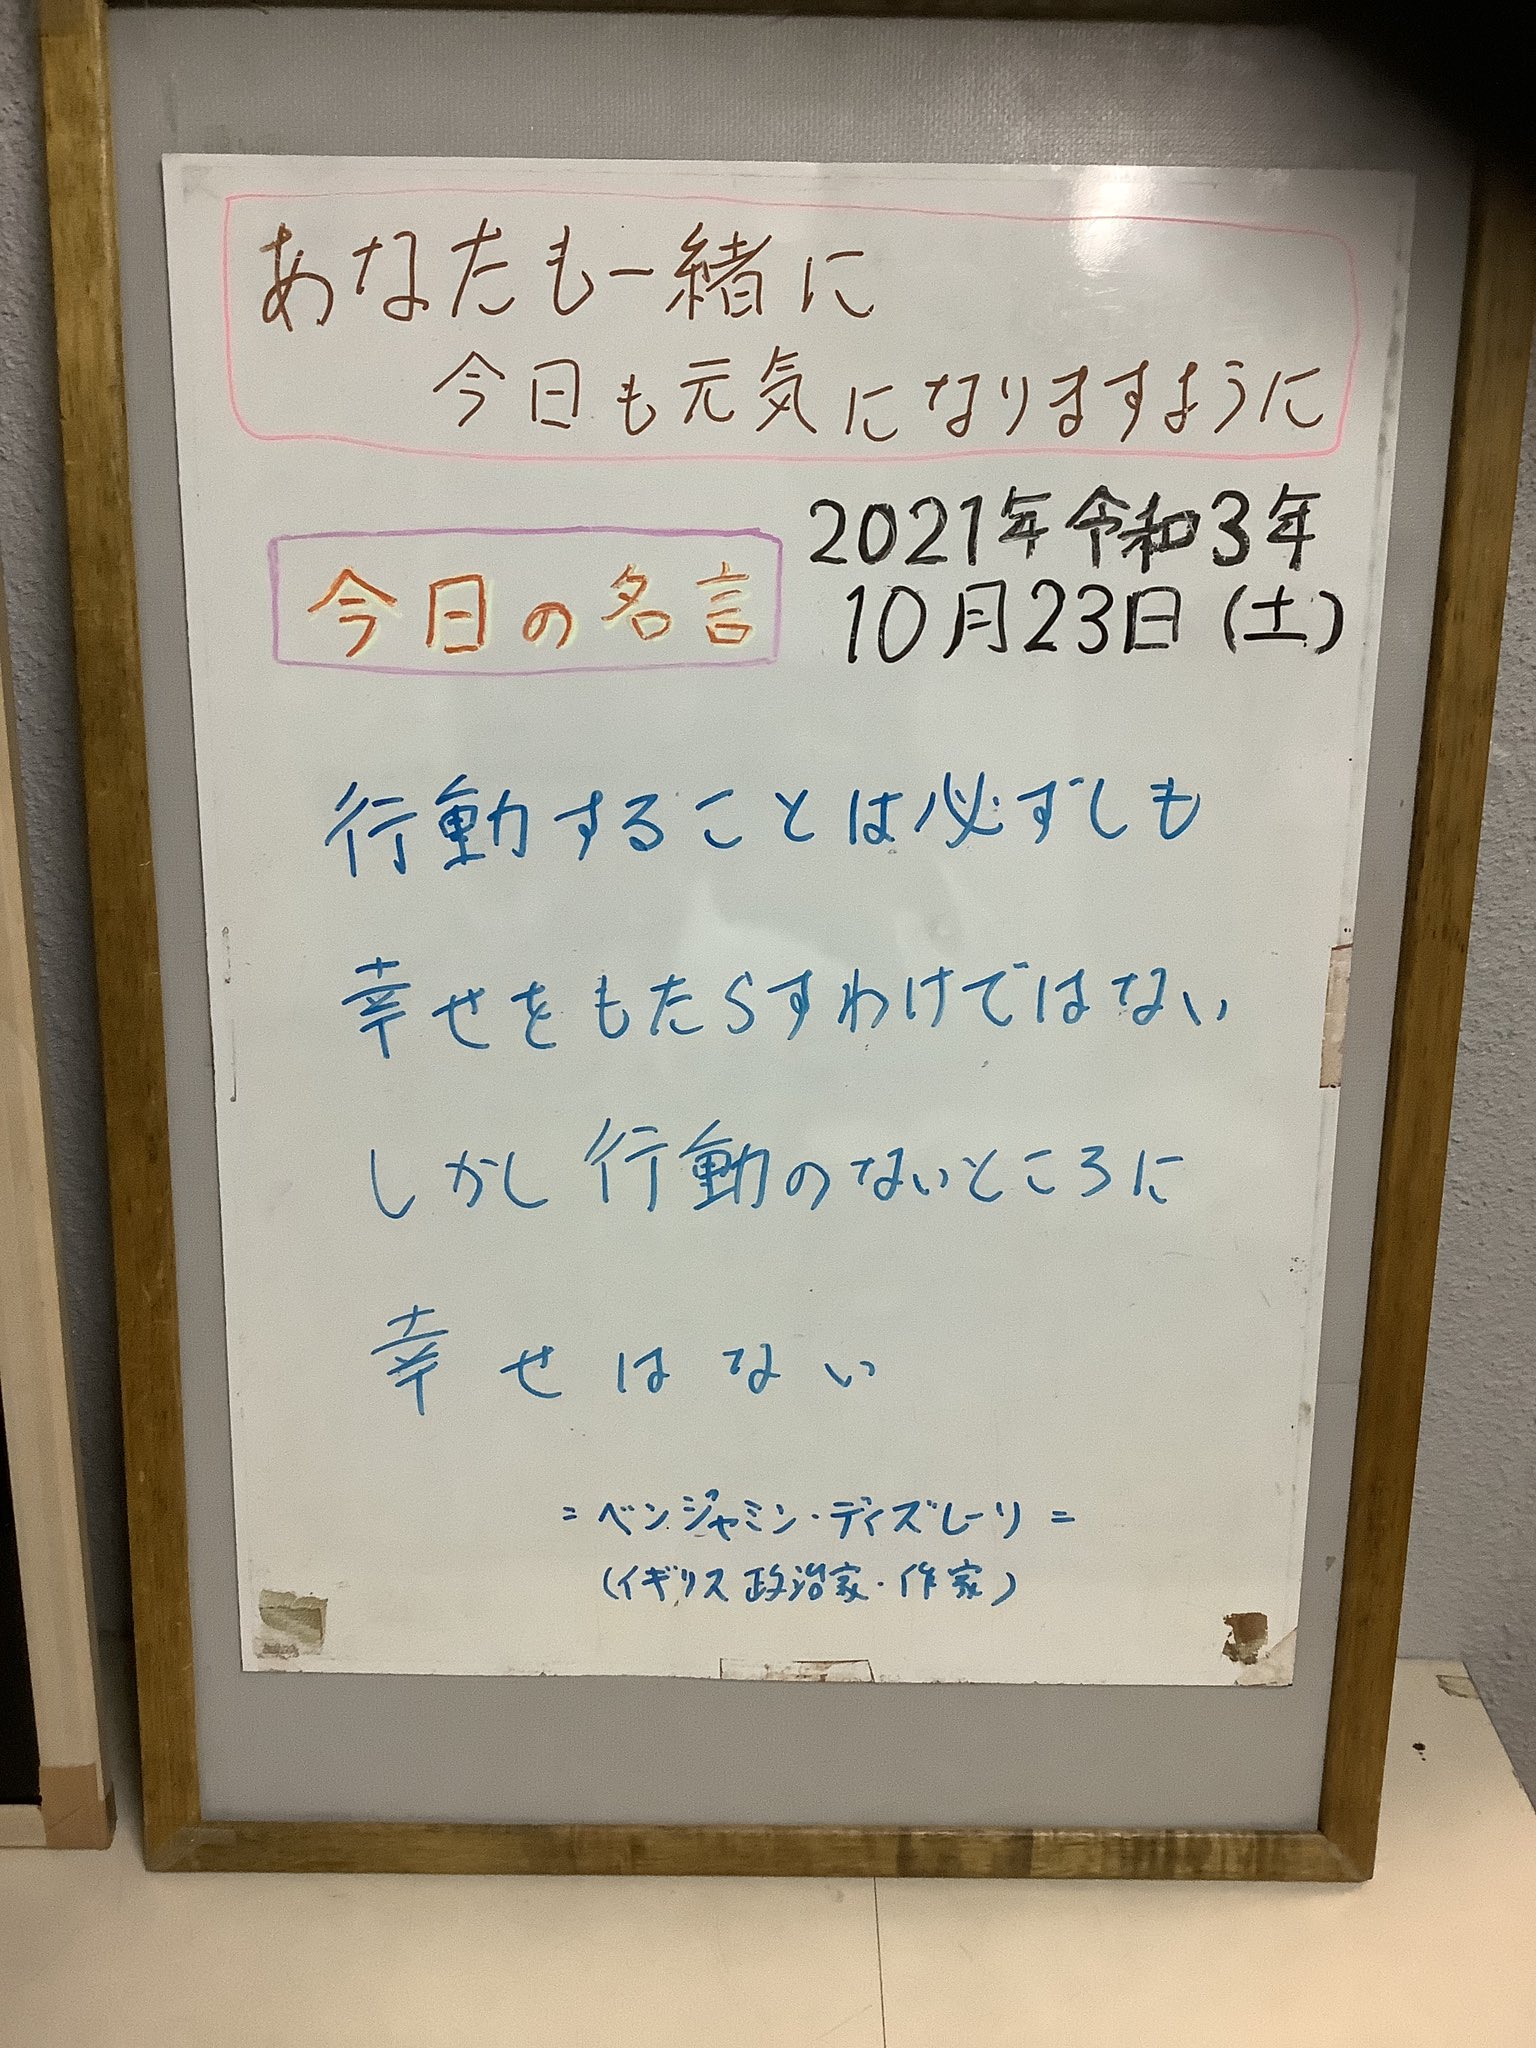 あなたも一緒に
今日も元気になりますように
2021年令和3年
今日の名言
10月23日(土)
行動することは必ずしも
幸せをもたらすわけではない
しかし行動のないところに
幸せはない
=ベンジャミン・ディズレーリ=
(イギリス政治家・作家)